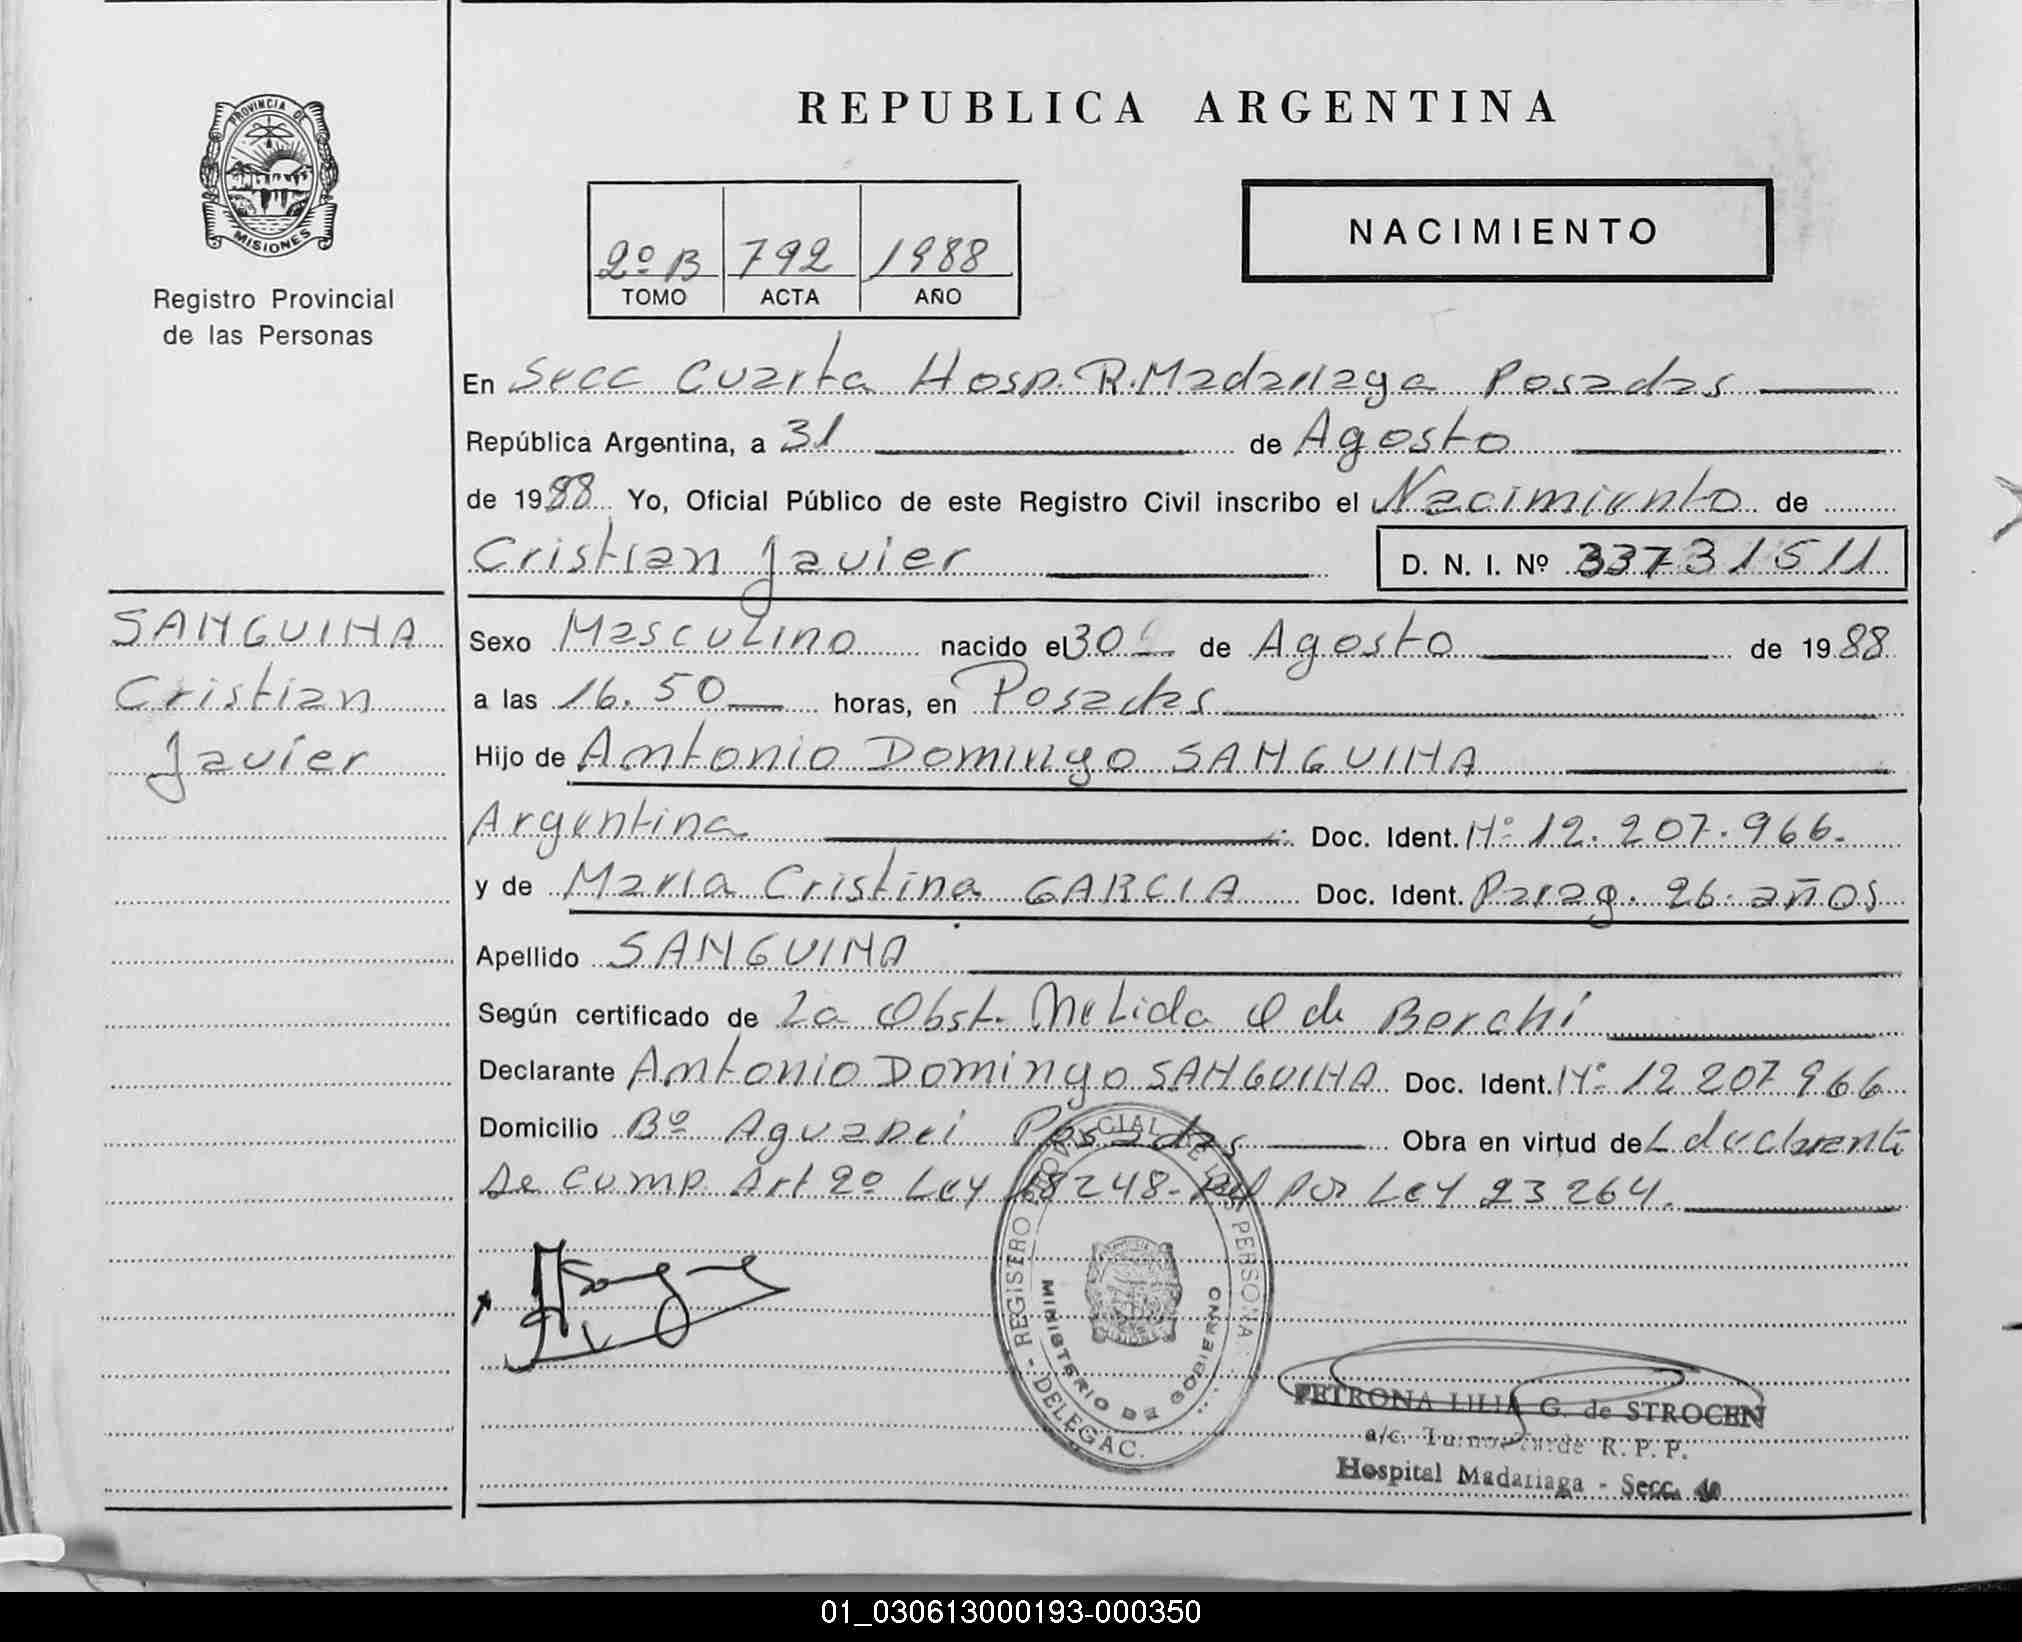 REPUBLICA ARGENTINA
PROVINCIA DE
MISIONES
Registro Provincial
de las Personas
2º B 792 1988
TOMO ACTA AÑO
NACIMIENTO
En Secc Cuarta Hosp. R. Madariaga Posadas
República Argentina, a 31 de Agosto
de 1988 Yo, Oficial Público de este Registro Civil inscribo el Nacimiento de
Cristian Javier D. N. I. Nº 33731511
SANGUINA
Cristian
Javier
Sexo Masculino nacido el 30 de Agosto de 1988
a las 16.50 horas, en Posadas
Hijo de Antonio Domingo SANGUINA
Argentina Doc. Ident. Nº 12.207.966.
y de María Cristina GARCIA Doc. Ident. Parag. 26 años
Apellido SANGUINA
Según certificado de La Obst. de Borchi
Declarante Antonio Domingo SANGUINA Doc. Ident. Nº 12 207 966
Domicilio Bº Aguapei Posadas Obra en virtud de
Se cump. Art 2º Ley 18248- por Ley 23264.
REGISTRO PROVINCIAL DE LAS PERSONAS
MINISTERIO DE GOBIERNO
DELEGAC.
PETRONA LILIA G. de STROCEN
a/c. Turno tarde R. P. P.
Hospital Madariaga - Secc.
01_030613000193-000350